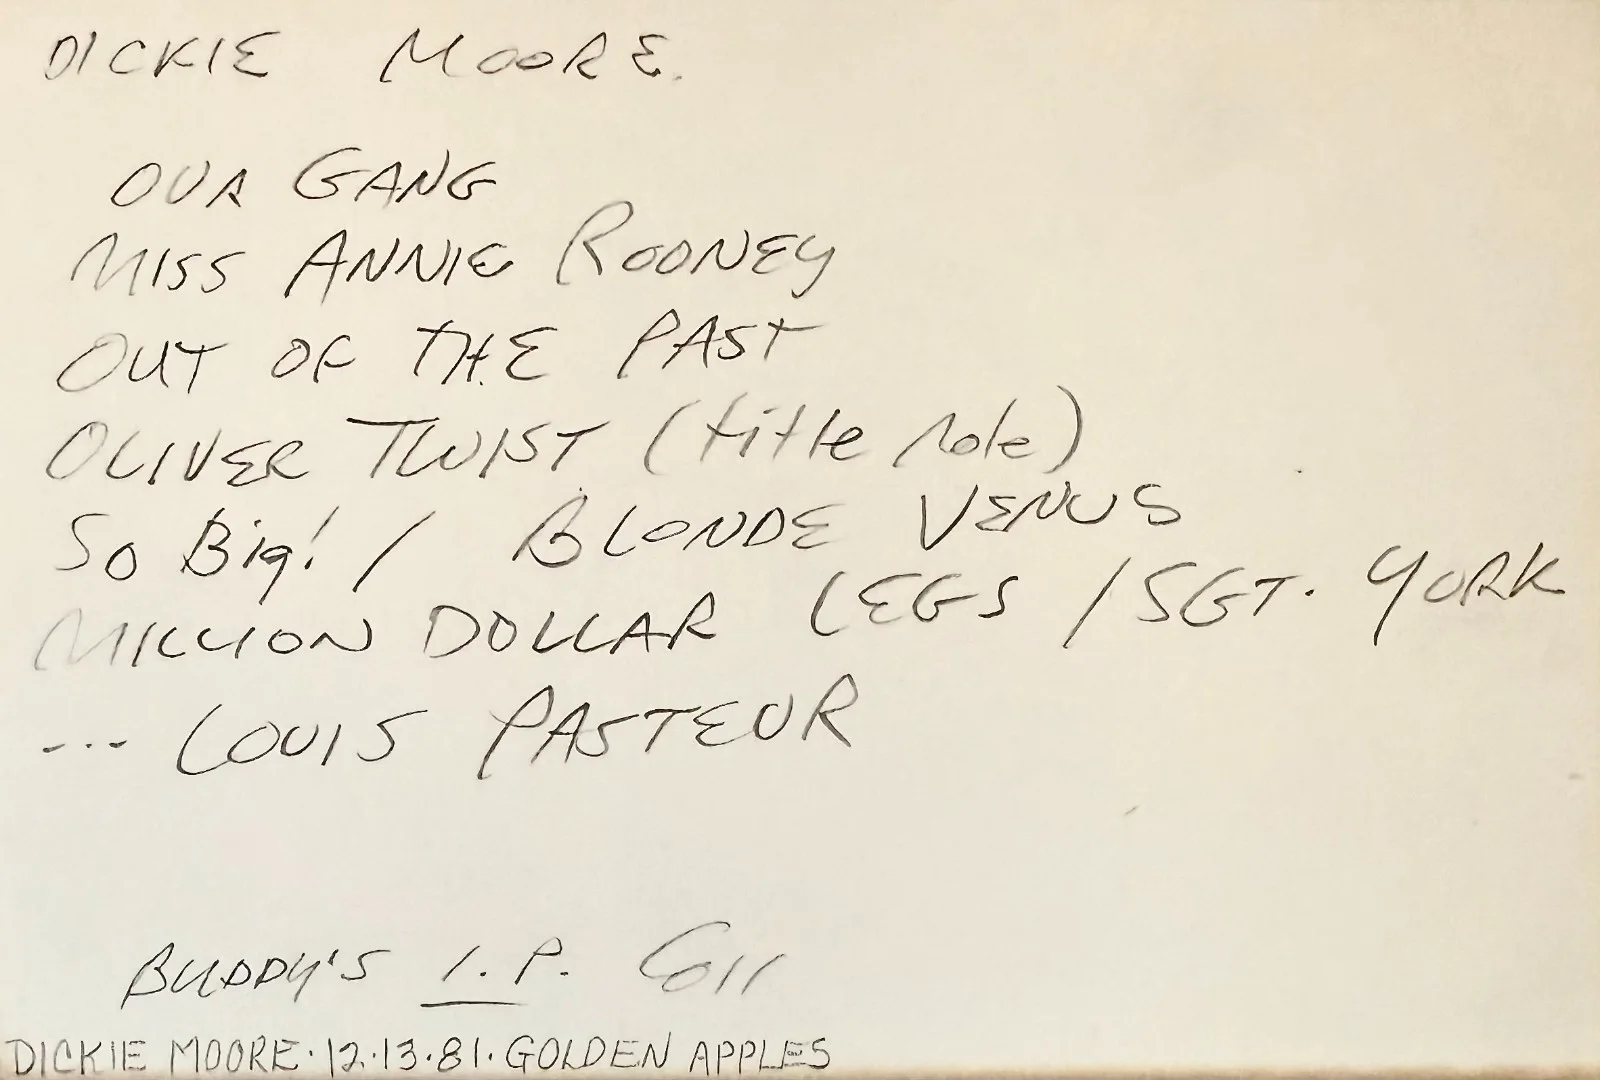 DICKIE MOORE.
OUR GANG
MISS ANNIE ROONEY
OUT OF THE PAST
OLIVER TWIST (title role)
So Big! / BLONDE VENUS
MILLION DOLLAR LEGS / SGT. YORK
... LOUIS PASTEUR
BUDDY'S I.P. Coll
DICKIE MOORE·12·13·81·GOLDEN APPLES